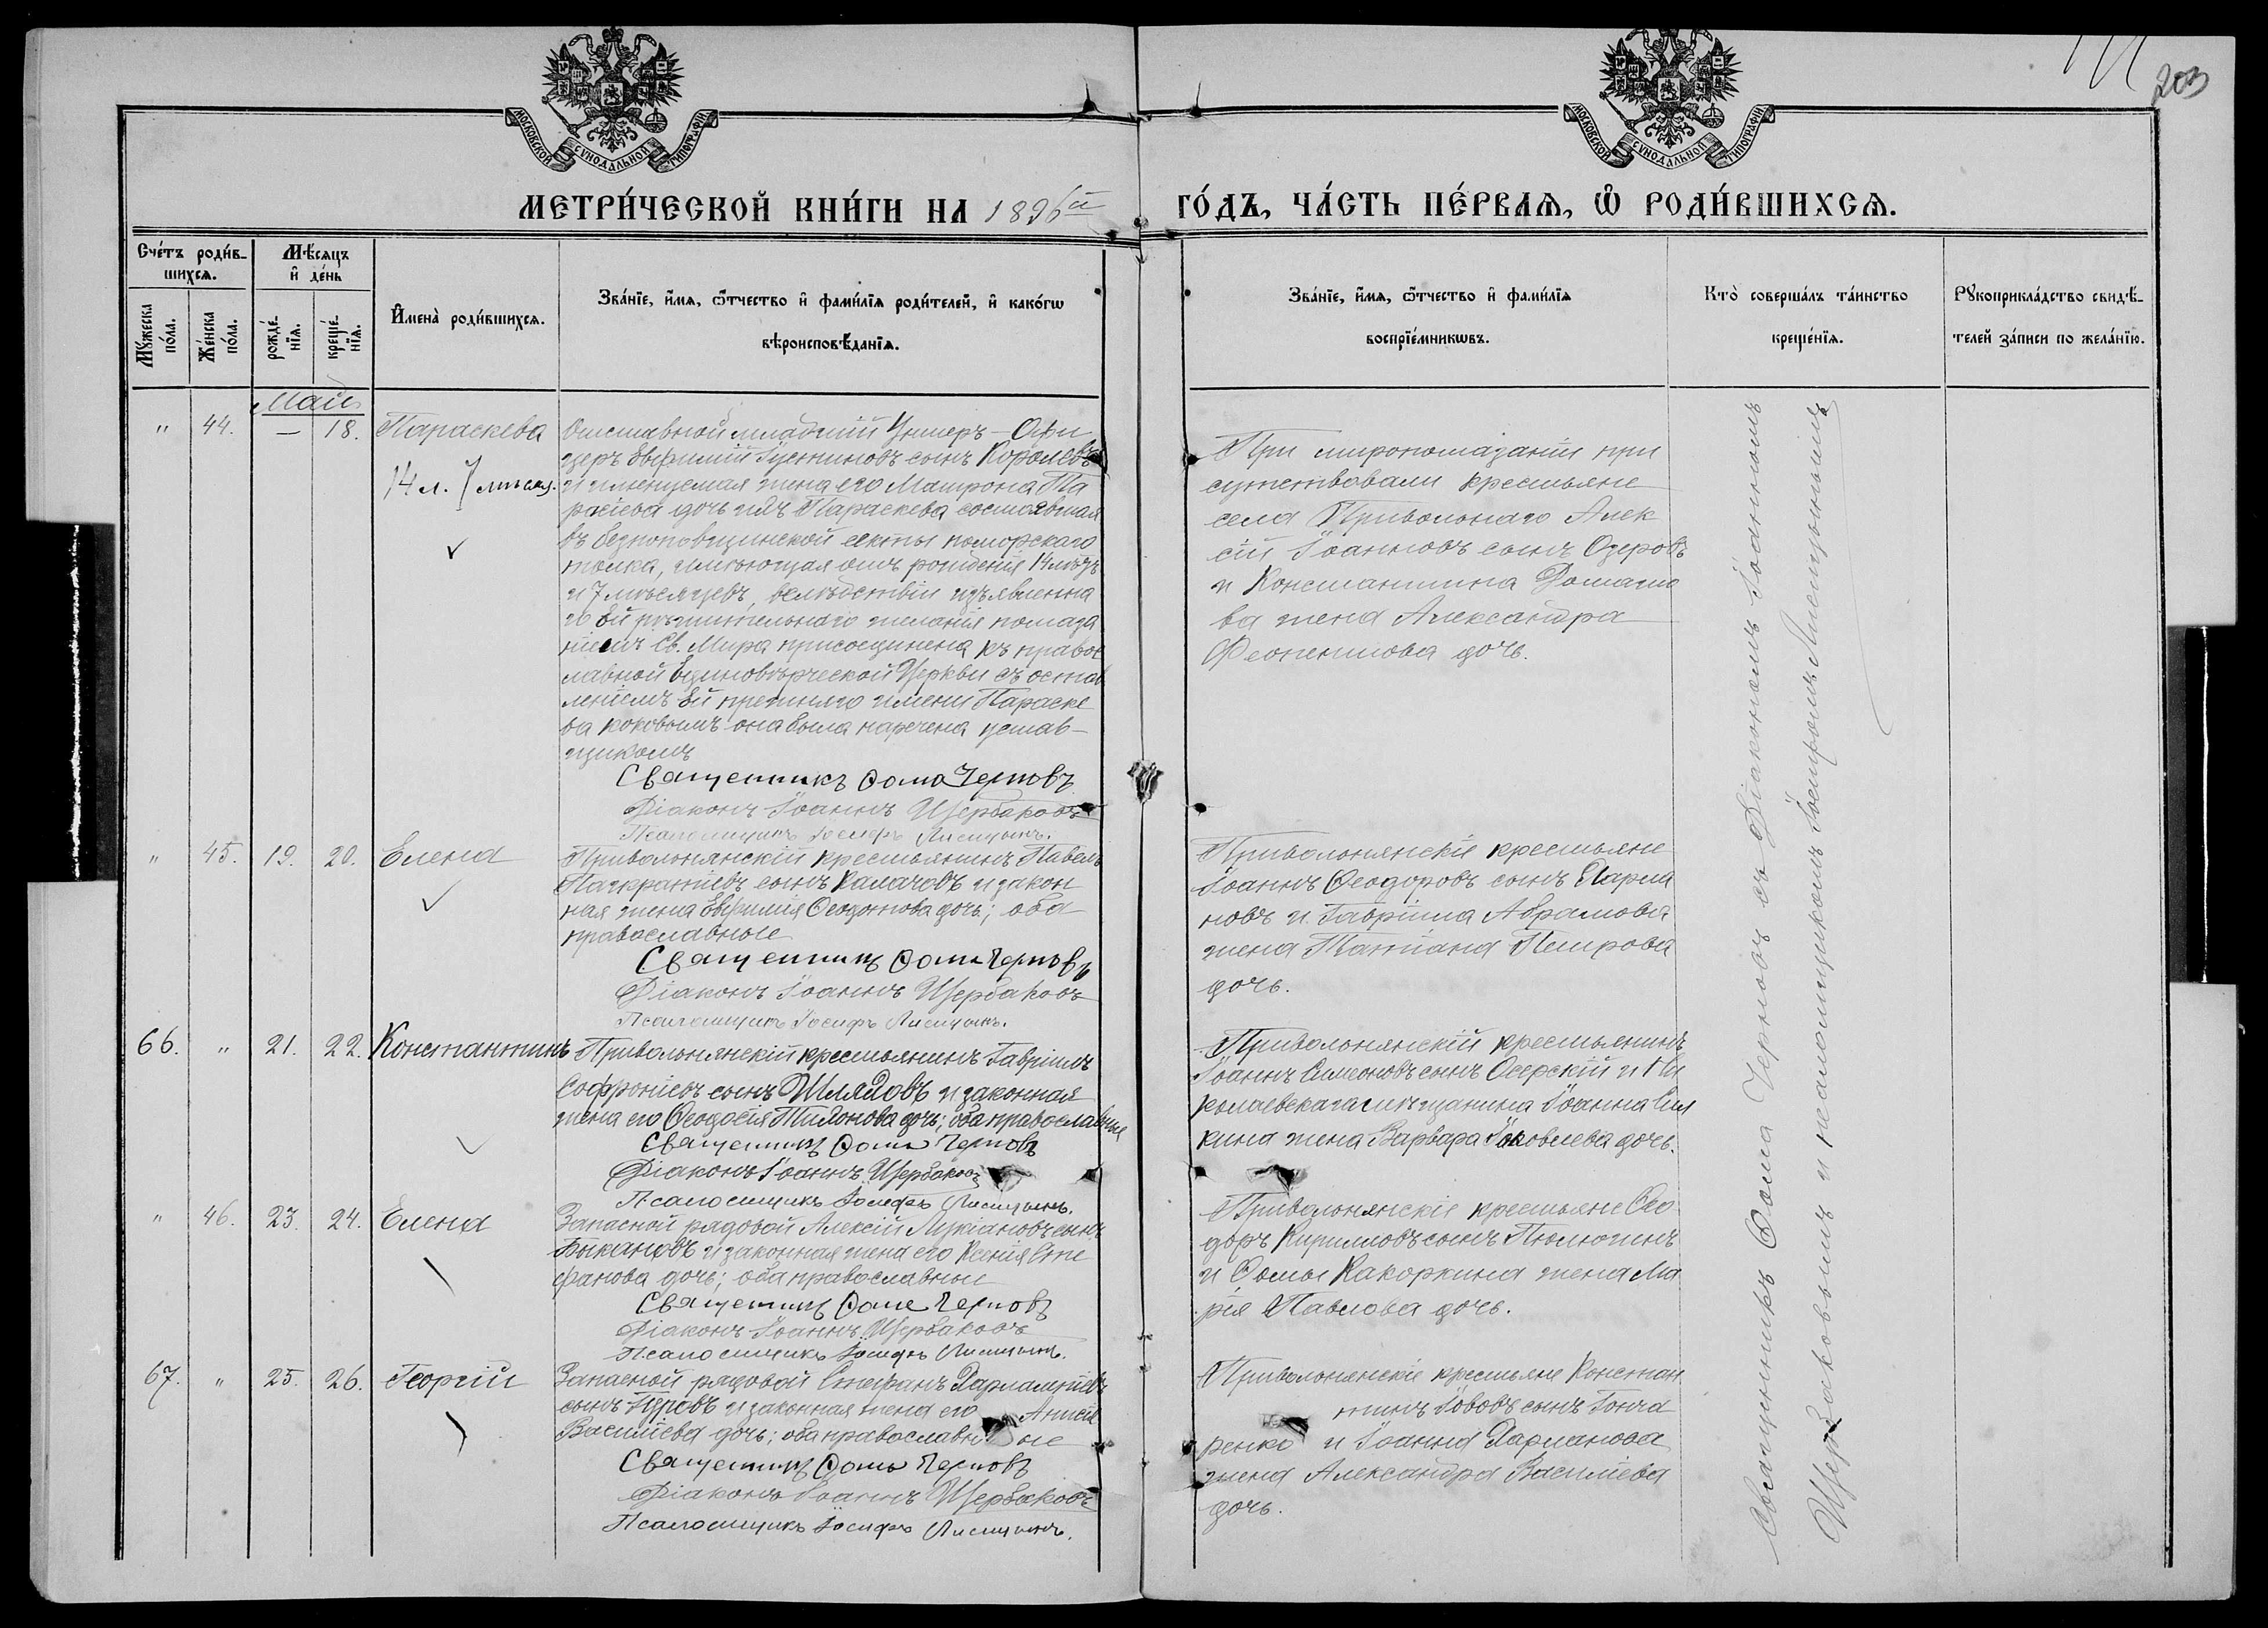 203
МОСКОВСКОЙ СѴНОДАЛЬНОЙ ТИПОГРАФІИ
МОСКОВСКОЙ СѴНОДАЛЬНОЙ ТИПОГРАФІИ
МЕТРИ́ЧЕСКОЙ КНИ́ГИ НА 1896й ГО́ДЪ, ЧА́СТЬ ПЕ́РВАѦ, Ѡ РОДИ́ВШИХСѦ.
Сче́тъ роди́в-
шихсѧ.
Мѣ́сѧцъ
и де́нь
Мꙋ́жеска
по́ла.
Же́нска
по́ла.
рожде́-
нїѧ.
креще́-
нїѧ.
И҆мена̀ роди́вшихсѧ.
Зва́нїе, и҆́мѧ, ѻ҆́тчество и҆ фами́лїѧ роди́телей, и҆ како́гѡ
вѣроисповѣ́данїѧ.
Зва́нїе, и҆́мѧ, ѻ҆́тчество и҆ фами́лїѧ
воспрїе́мникѡвъ.
Кто̀ соверша́лъ та́инство
креще́нїѧ.
Рꙋкоприкла́дство свидѣ́-
телей за́писи по жела́нїю.
Май
" 44. — 18. Параскева
14 л. 7 мѣсяц.
Отставной младшій Унтеръ-Офи
церъ Евѳимій Іустиновъ сынъ Королевъ
и именуемая жена его Матрона Та
расіева дочь ихъ Параскева состоявшая
въ безпоповщинской секты поморскаго
толка, имѣющая отъ рожденія 14 лѣтъ
и 7 мѣсяцевъ, вслѣдствіи изъявленна
го Ей рѣшительнаго желанія помаза
ніемъ Св. Мира присоединена къ правос
лавной Единовѣрческой Церкви съ остав
леніемъ Ей прежняго имени Параске
ва коковымъ она была наречена устав-
щикомъ
Священникъ Ѳома Черновъ
Діаконъ Іоаннъ Щербаковъ
Псаломщикъ Іосифъ Лисицынъ.
При миропомазаніи при
сутствовали крестьяне
села Привольнаго Алек
сій Іоанновъ сынъ Озеровъ
и Константина Домашо
ва жена Александра
Феопентова дочь.
" 45. 19. 20. Елена
Привольнянскій крестьянинъ Павелъ
Панкратіевъ сынъ Калачовъ и закон
ная жена Евѳимія Ѳеодотова дочь; оба
православные
Священникъ Ѳома Черновъ
Діаконъ Іоаннъ Щербаковъ
Псаломщикъ Іосифъ Лисицынъ.
Привольнянскіе крестьяне
Іоаннъ Ѳеодоровъ сынъ Харла
новъ и Гавріила Абрамова
жена Татіана Петрова
дочь.
66. " 21. 22. Константинъ
Привольнянскій крестьянинъ Гавріилъ
Софроніевъ сынъ Шляховъ и законная
жена его Ѳеодосія Тихонова дочь; оба православные
Священникъ Ѳома Черновъ
Діаконъ Іоаннъ Щербаковъ
Псаломщикъ Іосифъ Лисицынъ.
Привольнянскій крестьянинъ
Іоаннъ Симеоновъ сынъ Озерскій и Ни
колаевскаго мѣщанина Іоанна Сил
кина жена Варвара Іаковлева дочь.
" 46. 23. 24. Елена
Запасной рядовой Алексій Лукіановъ сынъ
Быкановъ и законная жена его Ксенія Сте
фанова дочь; оба православные
Священникъ Ѳома Черновъ
Діаконъ Іоаннъ Щербаковъ
Псаломщикъ Іосифъ Лисицынъ.
Привольнянскіе крестьяне Ѳео
доръ Кирилловъ сынъ Тюлюгинъ
и Ѳомы Какоркина жена Ма
рія Павлова дочь.
67. " 25. 26. Георгій
Запасной рядовой Стефанъ Харлампіевъ
сынъ и законная жена его Анисія
Василіева дочь; оба православные
Священникъ Ѳома Черновъ
Діаконъ Іоаннъ Щербаковъ
Псаломщикъ Іосифъ Лисицынъ.
Привольнянскіе крестьяне Констан
тинъ Іововъ сынъ Гонча
ренко и Іоанна Харланова
жена Александра Василіева
дочь.
Священникъ Ѳома Черновъ съ Діакономъ Іоанномъ
Щербаковымъ и псаломщикомъ Іосифомъ Лисицынымъ